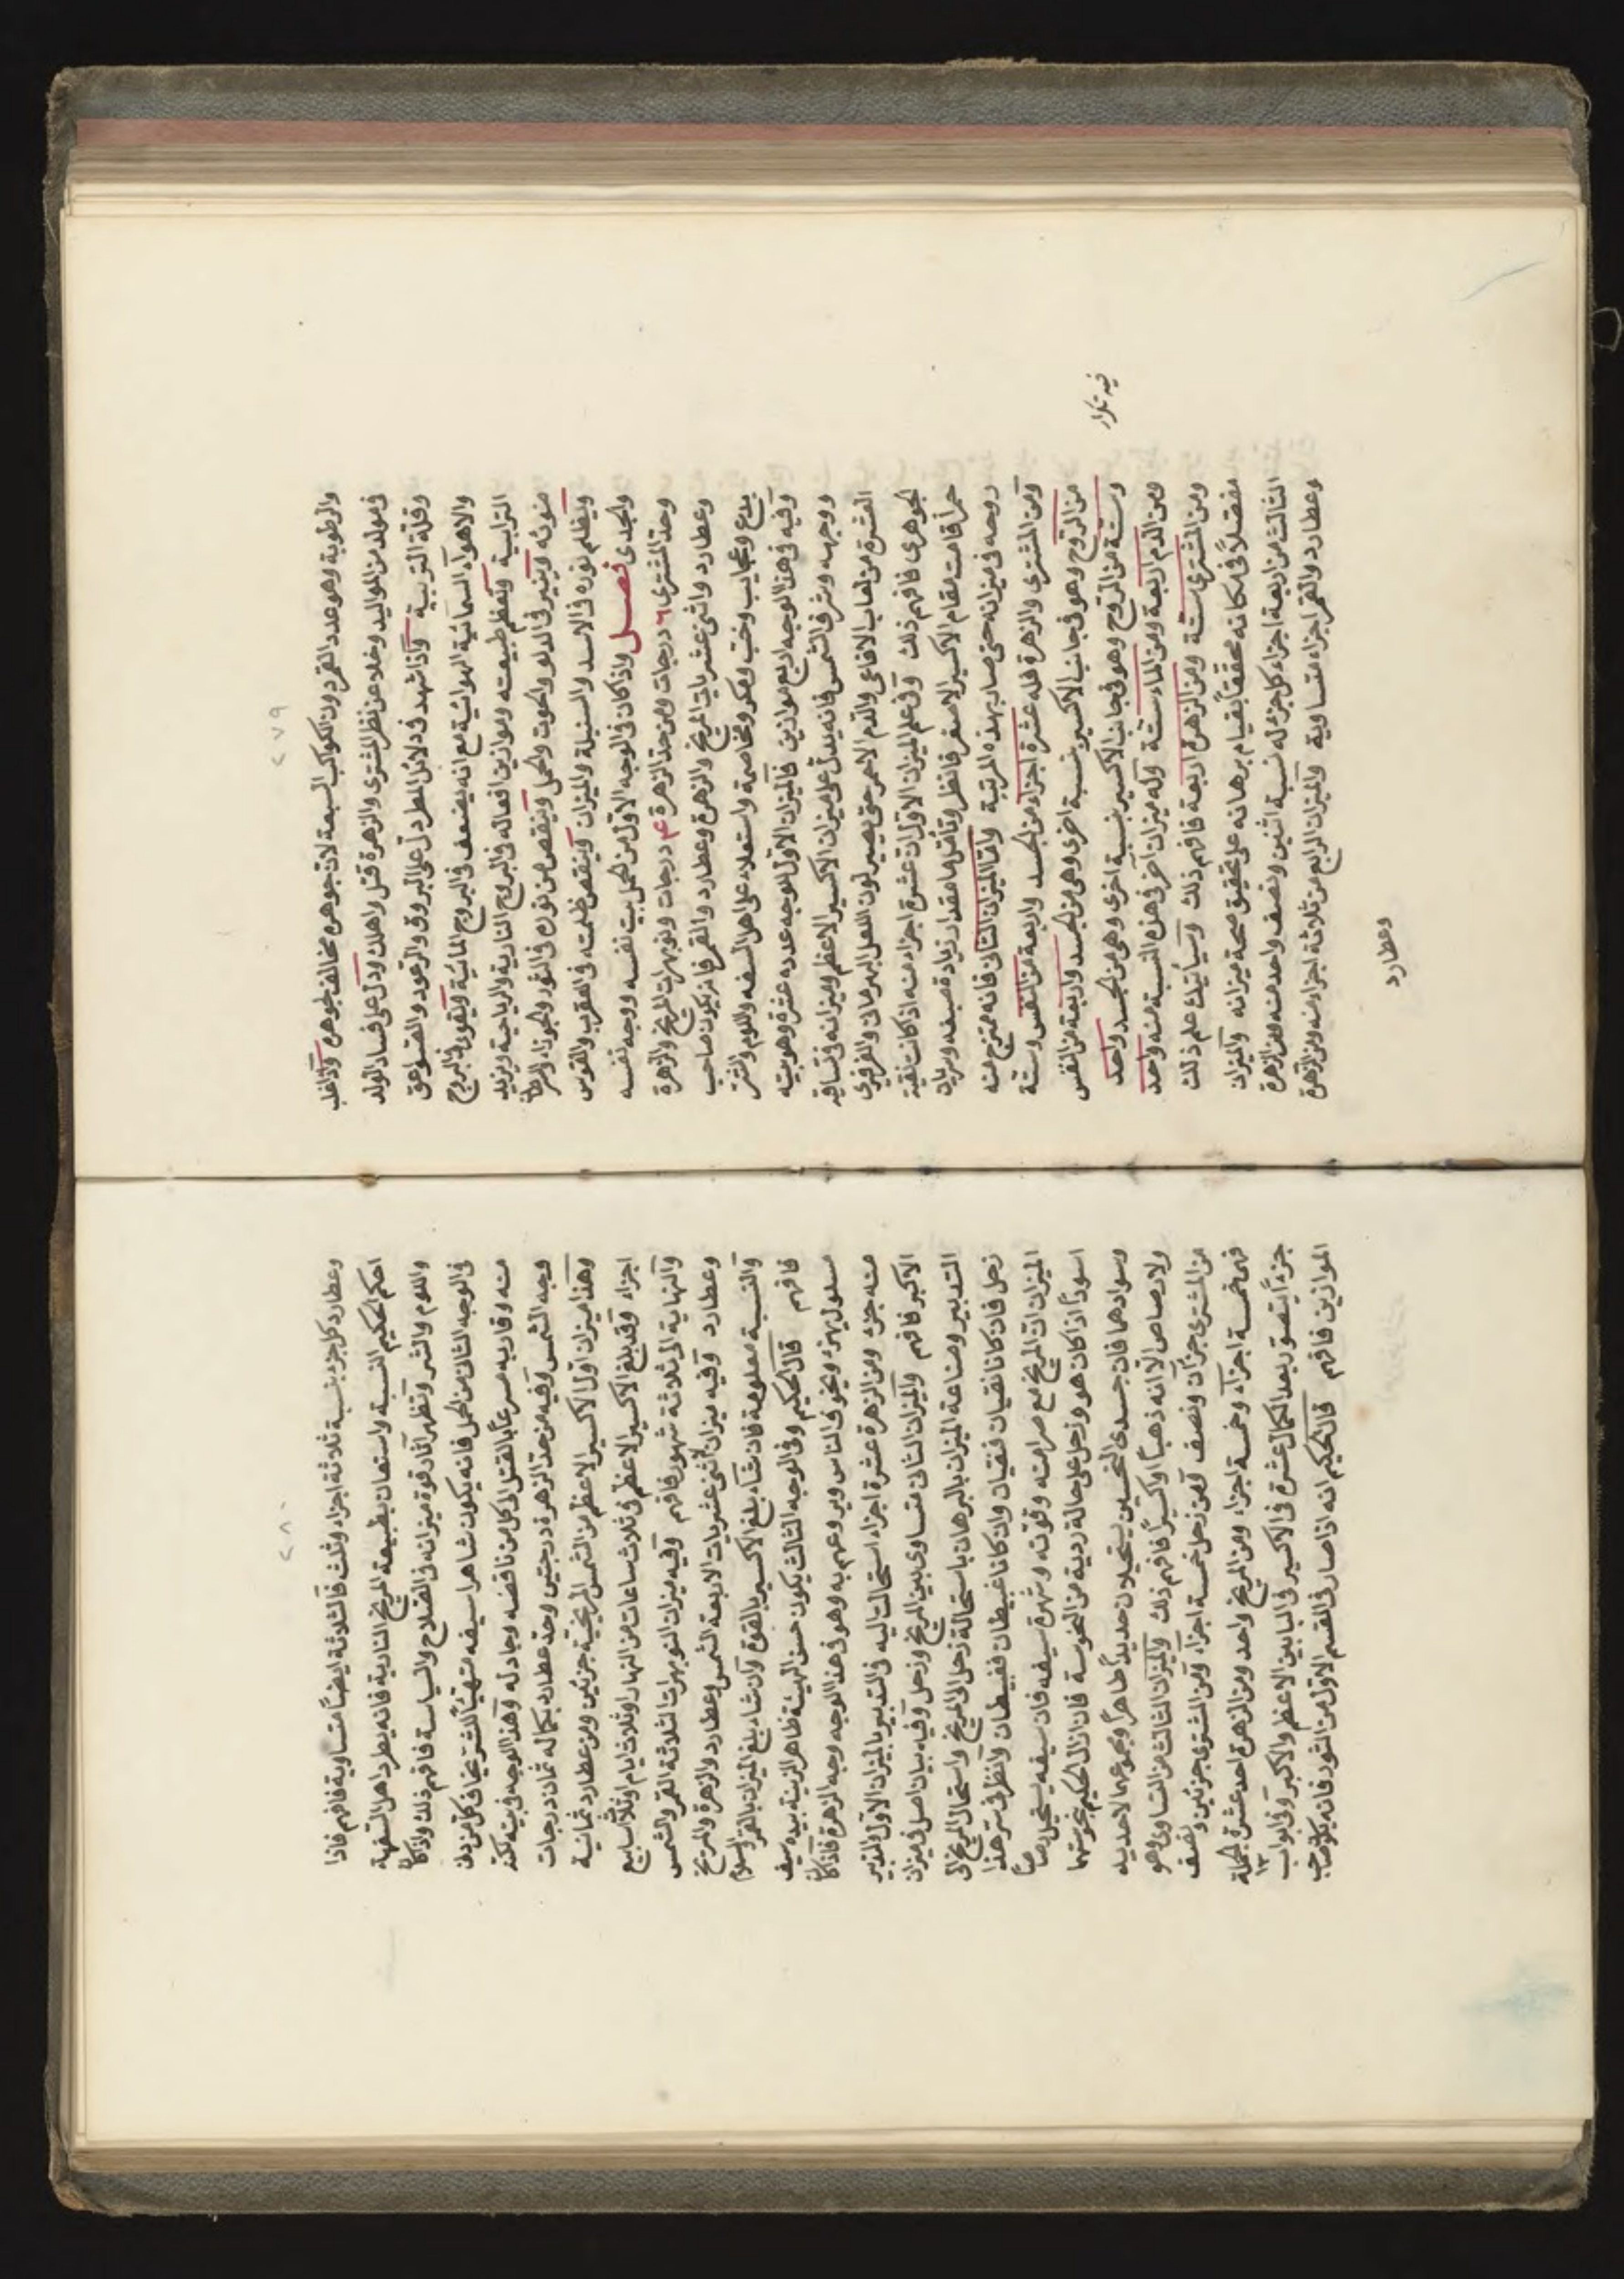 ٢٧٩
والرطوبة وهو عدد القمر دون الكواكب السبعة لان جوهره مخالف لجوهره وآذا غلب
فى مولد من المواليد وخلا عن نظر المشترى والزهرة قتل واهلك ودل على فساد الولد
وقلة التربية وآذا شهد فى دلائل المطر دل على البروق والرعود والصواعق
والاهوآء السمائية الهوائية مع انه يضعف فى البروج المائية ويقوى فى البروج
الترابية وتعظم طبيعته وموازين افعاله فى البروج النارية والرياحية ويزيد
ضوئه وينير فى الدلو والحوت والحمل وينقص من نوره فى الثور والجوزاء والسرطان
ويظلم نوره فى الاسد والسنبلة والميزان وينقص ظلمته فى العقرب والقوس
والجدى فصل واذا كان فى الوجه الاول من الحمل بيت نفسه ووجه نفسه
وحد المشترى ٦ درجات ومن حد الزهرة ٤ درجات ونوبهرات المريخ والزهرة
وعطارد واثنى عشريات المريخ والزهرة وعطارد والقمر فانه يكون صاحب
بدع وعجايب وخبث ومكر ومخاصمة واستعلاء على اهل السفه واللوم والشر
وفيه فى هذا الوجه اربع موازين فالميزان الاول للوجه عدده عشرة وهو بيته
ووجهه وشرف الشمس فانه يدل على ميزان الاكسير الاعظم وميزانه فى تساقيه
العشرة من لعاب الافاعى والدم الاحمر حتى يصير لون اللعل البهرمانى والفرفيرى
الجوهرى فافهم ذلك وفى علم الميزان الاول ان عشرة اجزاء منه اذا كانت نقية
حمرآ قامت مقام الاكسير الاصفر فانظر وتأمل ما مقدار زيادة صبغه وسريان
روحه فى ميزانه حتى صار بهذه المرتبة واما الميزان الثانى فانه ممتزج منه
ومن المشترى والزهرة فله عشرة اجزاء من الجسد واربعة من النفس وستة
من الروح وهو فى جانب الاكسير بنسبة اخرى وهى من الجسد واربعة من النفس
وستة من الروح وهو فى جانب الاكسير بنسبة اخرى وهى من الجسد واحد
ومن الدم اربعة ومن الماء ستة وله ميزان اخر فى هذه النسبة منه واحد
ومن المشترى ستة ومن الزهرة اربعة فافهم ذلك وسيأتيك علم ذلك
مفصلاً فى مكانه محققاً بقيام برهانه على تحقيق صحة ميزانه والميزان
الثالث من اربعة اجزاء كل جزء له نسبة اثنين ونصف واحد منه ومن الزهرة
وعطارد والقمر اجزاء متساوية والميزان الرابع من ثلاثة اجزاء منه ومن الزهرة
فيه تكرار
وعطارد
٢٨٠
وعطارد كل جزء بنسبة ثلاثة اجزاء وثلث فالثلاثة ايضاً متساوية فافهم فاذا
احكم الحكيم النسبة واستعان بطبيعة المريخ النارية فانه يطرد اهل السفهة
واللوم والشر وتظهر آثار قوة ميزانه فى الفلاح والسياسة فافهم ذلك واذا كان
فى الوجه الثانى من الحمل فانه يكون شاهرا سيفه متهيئاً للشر يخاف كل من دنى
منه وقاربه مسرعاً بالقتل الى كل من ناقضه وجادله وهذا الوجه فى بيته لكنه
وجه الشمس وفيه من حد الزهرة درجتين وحد عطارد بكماله ثمان درجات
وهذا ميزان اول الاكسير الاعظم من الشمس المريخية جزئين ومن عطارد ثمانية
اجزاء وقد بلغ الاكسير الاعظم فى ثلاث ساعات من النهار او ثلاث ايام او ثلاث اسابيع
والنهاية الى ثلاثة شهور فافهم وفيه ميزان النوبهرات الثلاثة القمر والشمس
وعطارد وفيه ميزان لاثنى عشريات الاربعة الشمس وعطارد والزهرة والمريخ
والنسبة معلومة فان شاء بلغ الاكسير بالقوة وان شاء بلغ الميزان بالقمر والسلام
فافهم قال الحكيم وفى الوجه الثالث يكون حسن الهيئة ظاهر الزينة بيده سيف
مسلول يهزء ويخوف الناس ويروعهم به وهو فى هذا الوجه وجه الزهرة فاذا كان
منه جزء ومن الزهرة عشرة اجزاء استحالت اليه فى التدبير بالميزان الاول والتدبير
الاكبر فافهم والميزان الثانى متساوى بين المريخ وزحل وفيه بيان اصل فى ميزان
التدبير وصناعة الميزان بالبرهان باستحالة زحل الى المريخ واستحال المريخ الى
زحل فان كانا نقيان فنقيان وان كانا غبيطان فغبيطان وانظر فى سر هذا
الميزان ان المريخ مع صرامته وقوته وشهرة سيفه فان سيفه يستحيل رصاصاً
اسوداً اذا كان هو وزحل على حالة ردية من النحوسة فان ازال الحكيم نحوستهما
وسوادهما فان جسدى النحسين يستحيلان حديداً طاهراً ومجموعهما لا حديد
ولا رصاص الا انه ذهباً او اكسيراً فافهم ذلك والميزان الثالث من التساوى وهو
من المشترى جزآن ونصف ومن زحل خمسة اجزاء ومن المشترى جزئين ونصف
فهى خمسة اجزآء وخمسة اجزاء ومن المريخ واحد ومن الزهرة احد عشر فى الجملة ١٣
جزءاً يتصور بعد الكمال عشرة فى الاكسير فى البابين الاعظم والاكبر وفى ابواب
الموازين فافهم قال الحكيم انه اذا صار فى القسم الاول من الثور فانه يكون صاحب